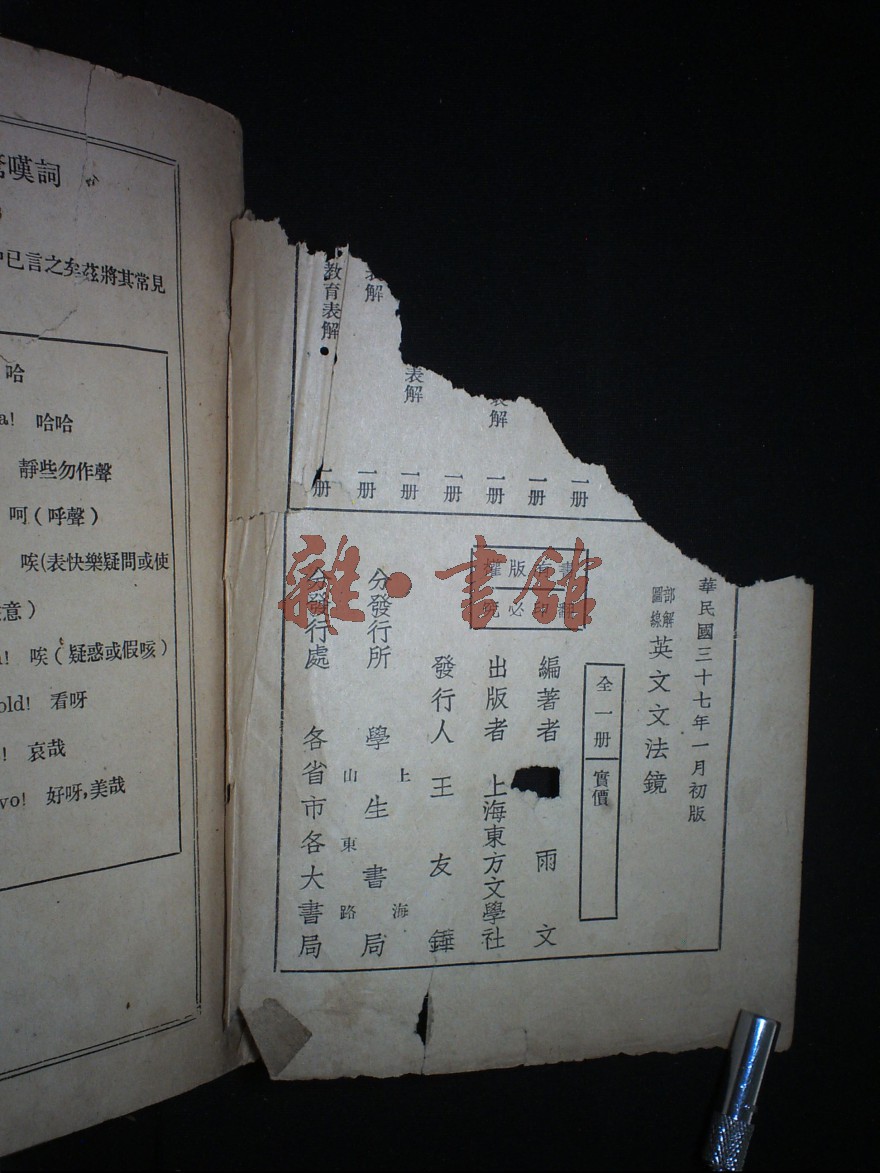 嘆詞
已言之矣茲將其常見
哈
a! 哈哈
靜些勿作聲
呵(呼聲)
唉(表快樂疑問或使
意)
! 唉(疑惑或假咳)
old! 看呀
! 哀哉
vo! 好呀,美哉
一册
一册
表解 一册
一册
表解 一册
解 一册
教育表解 一册
華民國三十七年一月初版
圖線
部解
英文文法鏡
全一册 實價
版權
必究
編著者 雨文
出版者 上海東方文學社
發行人 王友鏵
分發行所 學生書局
上海
山東路
分發行處 各省市各大書局
雜·書館